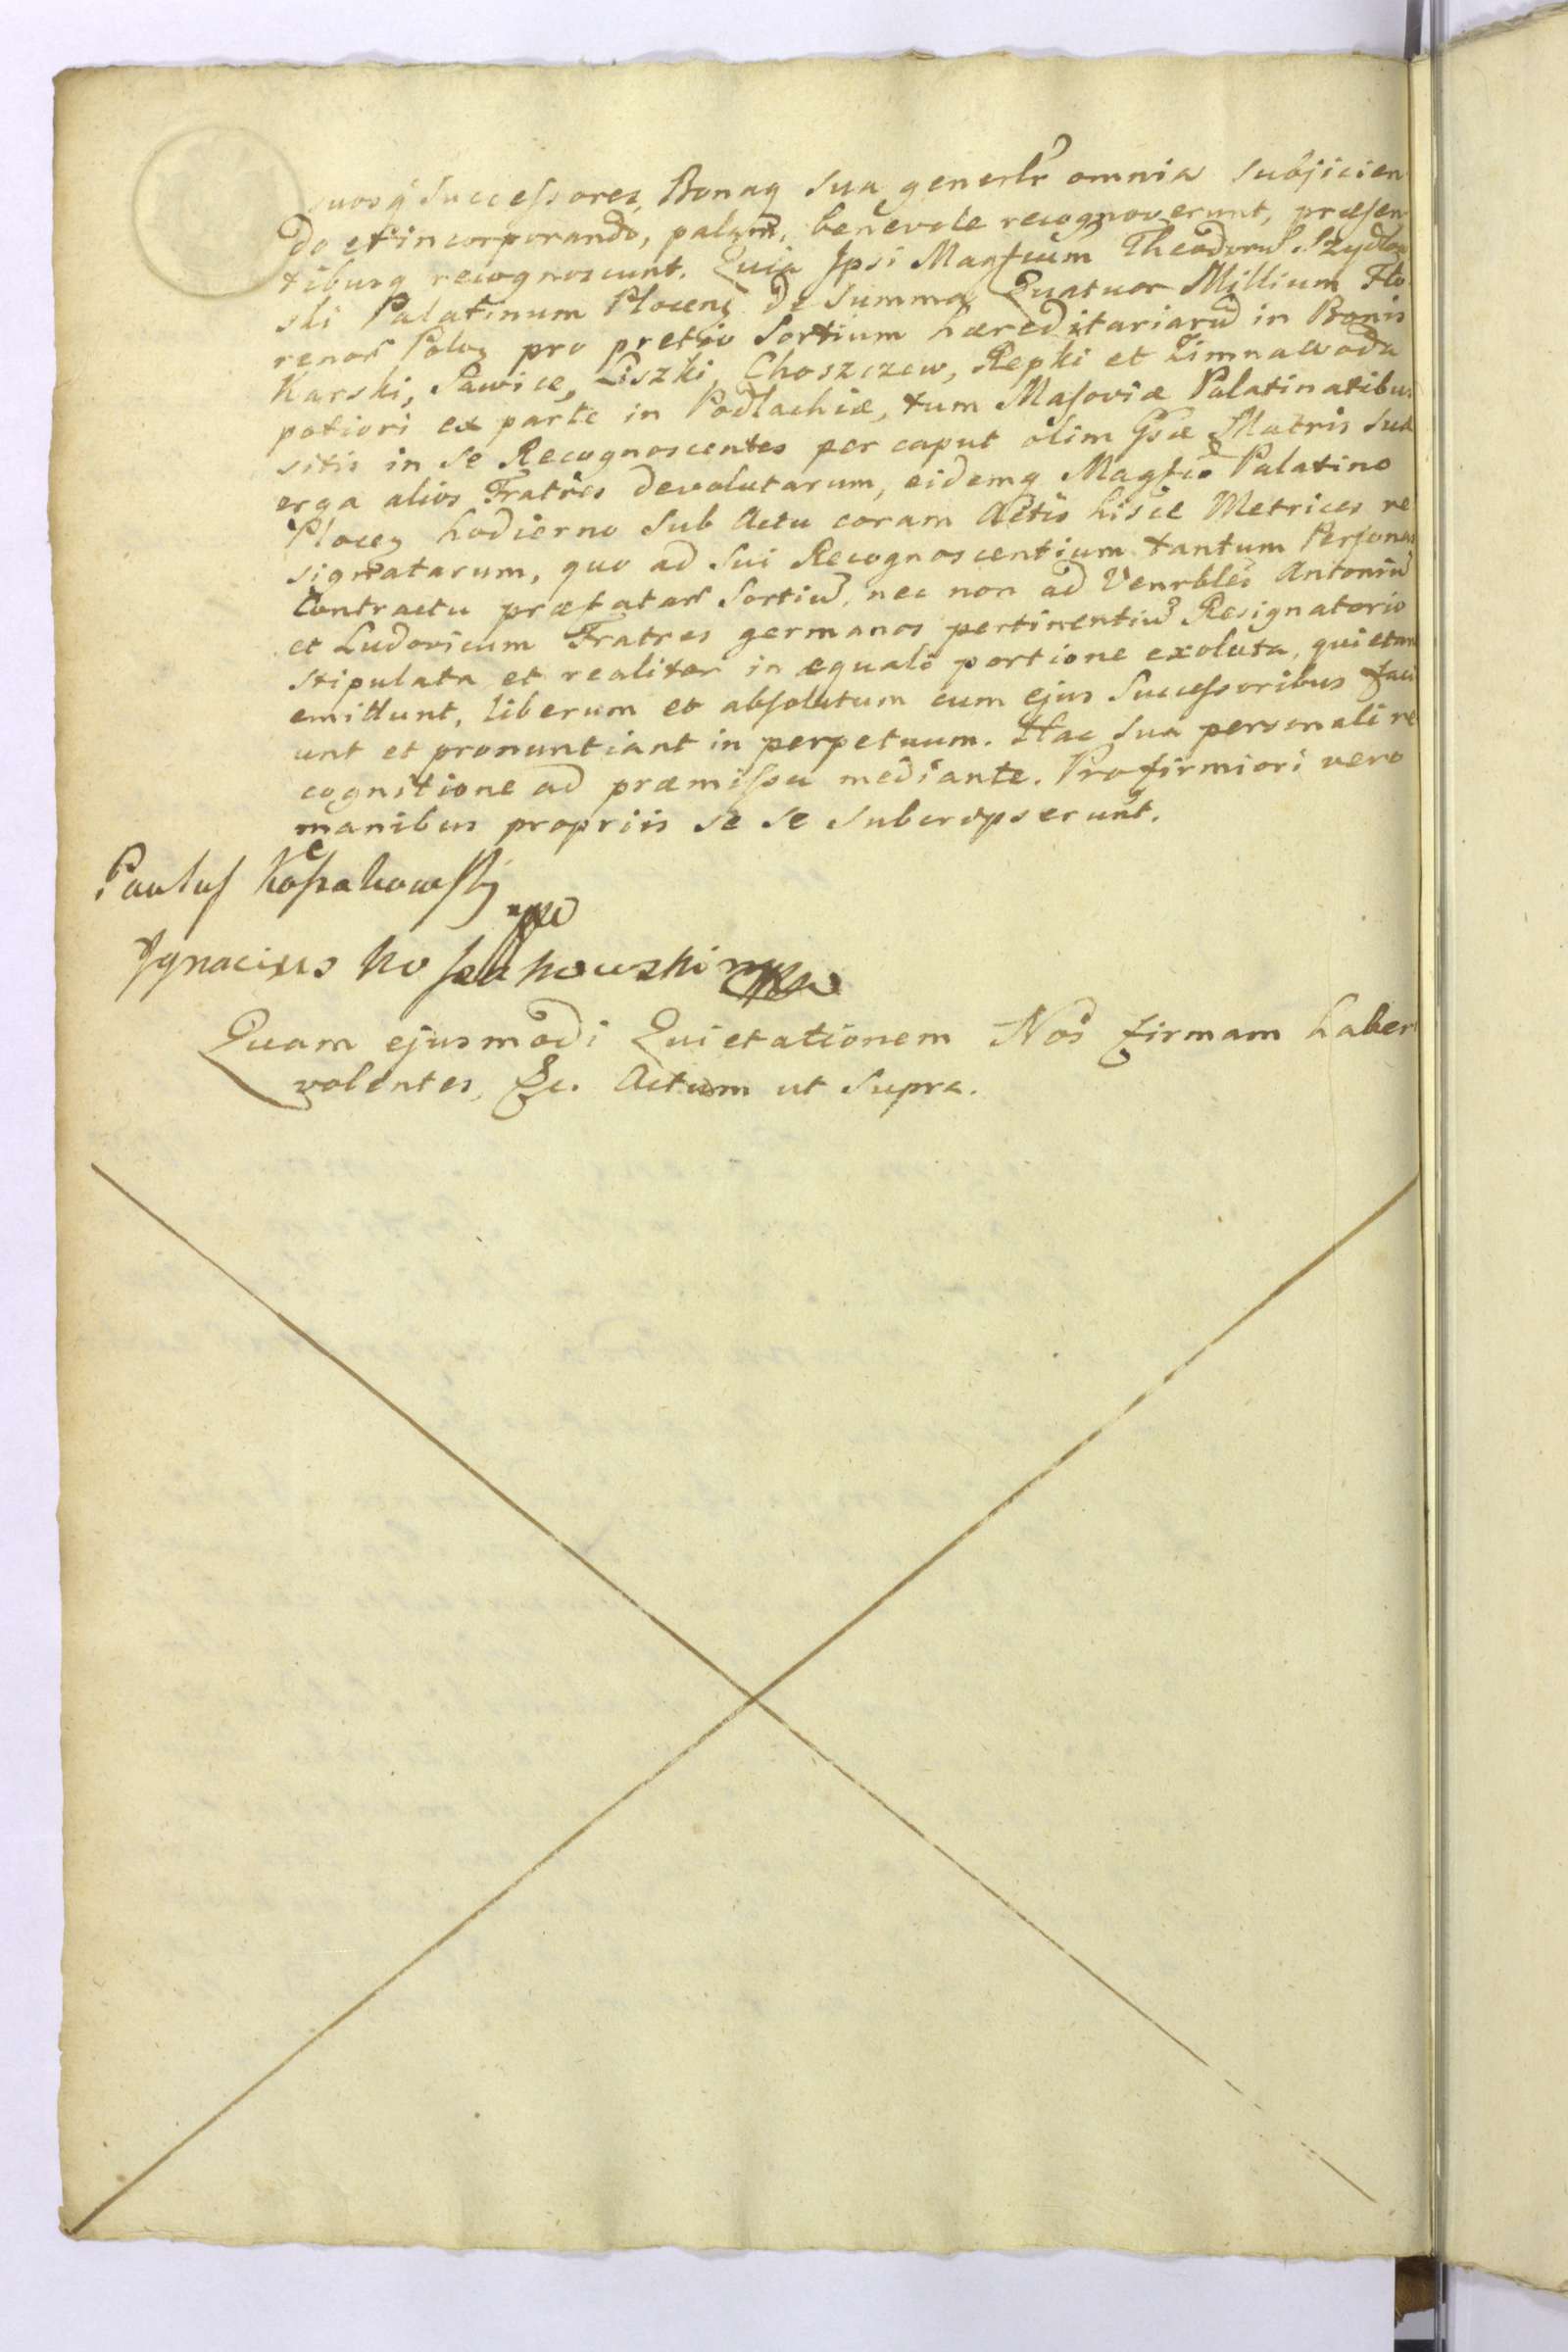 suosq Successores, Bonaq sua generlr omnia subjicien
do et incorporando, palam, benevole recognoverunt, præsen
tibusq recognoscunt. Quia Ipsi Magfcum Theodorum Szydłow
ski Palatinum Plocens De Summa Quatuor Millium Flo
renor Polon pro pretio Sortium hæreditariarum in Bonis
Karski, Sawice, Liszki, Choszczew, Repki et Zimnawoda
potiori ex parte in Podlachiæ, tum Masoviæ Palatinatibus
sitis in se Recognoscentes per caput olim Gsæ Matris suæ
erga alios Fratres devolutarum, eidemq Magfco Palatino
Plocen hodierno sub Actu coram Actis hisce Metrices re
signatarum, quo ad sui Recognoscentium tantum Personas
Contractu præfatar Sortium, nec non ad Venrbles Antonium
et Ludovicum Fratres germanos pertinentium Resignatorio
stipulata et realiter in æquali portione exoluta, quietant
emittunt, liberum et absolutum cum ejus Successoribus faci
unt et pronuntiant in perpetuum. Hac sua personali re
cognitione ad præmissa mediante. Pro firmiori vero
manibus propriis se se subscripserunt.
Paulus Kossakowski
mpp
Ignacius Kossakowski mpp
Quam ejusmodi Quietationem Nos firmam haber
volentes, &c. Actum ut supra.